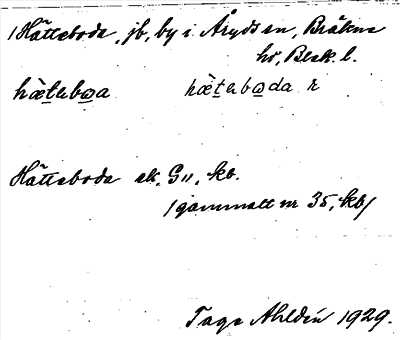 /Hätteboda, jb, by i Åryds sn, Bräkne
hd, Blek. l.
hæ̀tabωa hæ̀tabωda r
Hätteboda ek. G11, kb.
/gammalt nr 35, kb/
Tage Ahldén 1929.